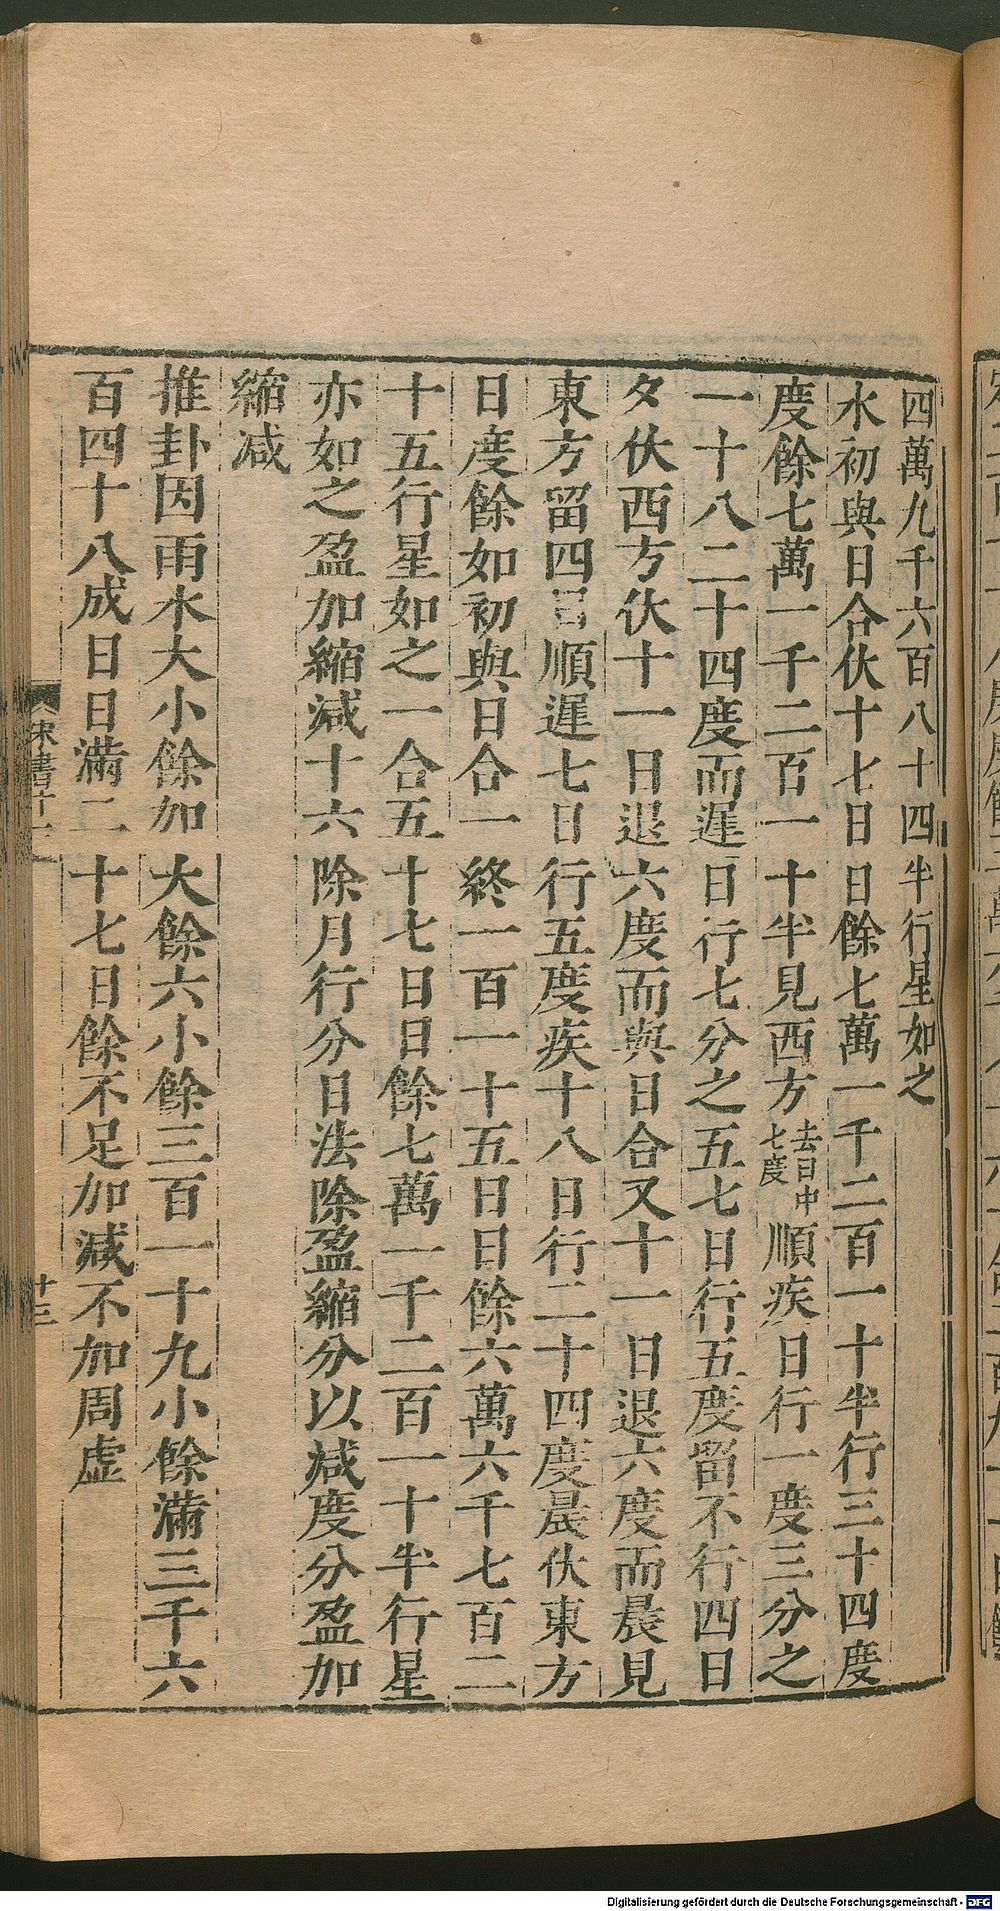 四萬九千六百八十四半行星如之
水初與日合伏十七日日餘七萬一千二百一十半行三十四度
度餘七萬一千二百一十半見西方去日中七度順疾日行一度三分之
一十八二十四度而遲日行七分之五七日行五度留不行四日
夕伏西方伏十一日退六度而與日合又十一日退六度而晨見
東方留四日順遲七日行五度疾十八日行二十四度晨伏東方
日度餘如初與日合一終一百一十五日日餘六萬六千七百二
十五行星如之一合五十七日日餘七萬一千二百一十半行星
亦如之盈加縮減十六除月行分日法除盈縮分以減度分盈加
縮減
推卦因雨水大小餘加大餘六小餘三百一十九小餘滿三千六
百四十八成日日滿二十七日餘不足加減不加周虛
宋書十一
十三
Digitalisierung gefördert durch die Deutsche Forschungsgemeinschaft - DFG